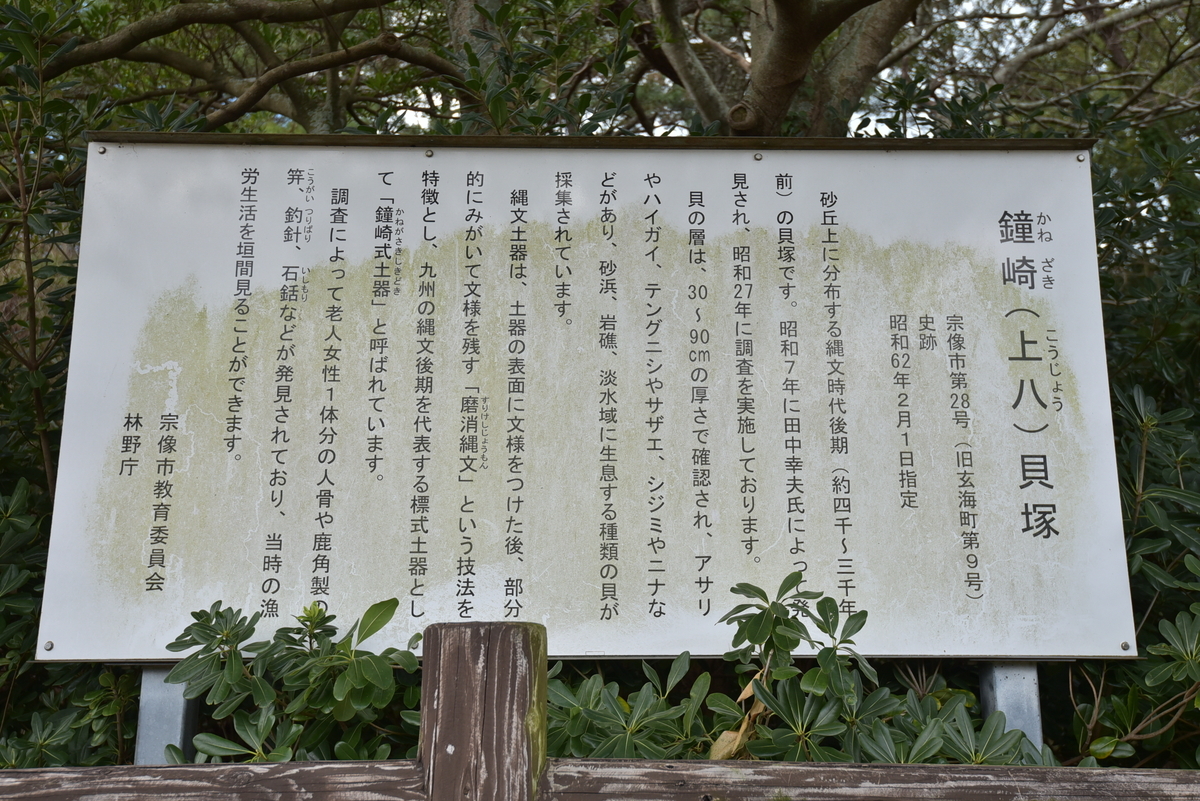 鐘崎（上八）貝塚
かねざき
こうじょう
宗像市第28号（旧玄海町第９号）
史跡
昭和62年２月１日指定
砂丘上に分布する縄文時代後期（約四千～三千年
前）の貝塚です。昭和７年に田中幸夫氏によって発
見され、昭和27年に調査を実施しております。
貝の層は、30～90cmの厚さで確認され、アサリ
やハイガイ、テングニシやサザエ、シジミやニナな
どがあり、砂浜、岩礁、淡水域に生息する種類の貝が
採集されています。
縄文土器は、土器の表面に文様をつけた後、部分
的にみがいて文様を残す「磨消縄文」という技法を
すりけしじょうもん
特徴とし、九州の縄文後期を代表する標式土器とし
て「鐘崎式土器」と呼ばれています。
かねがさきしきどき
調査によって老人女性１体分の人骨や鹿角製の
笄、釣針、石銛などが発見されており、当時の漁
こうがい つりばり いしもり
労生活を垣間見ることができます。
宗像市教育委員会
林野庁